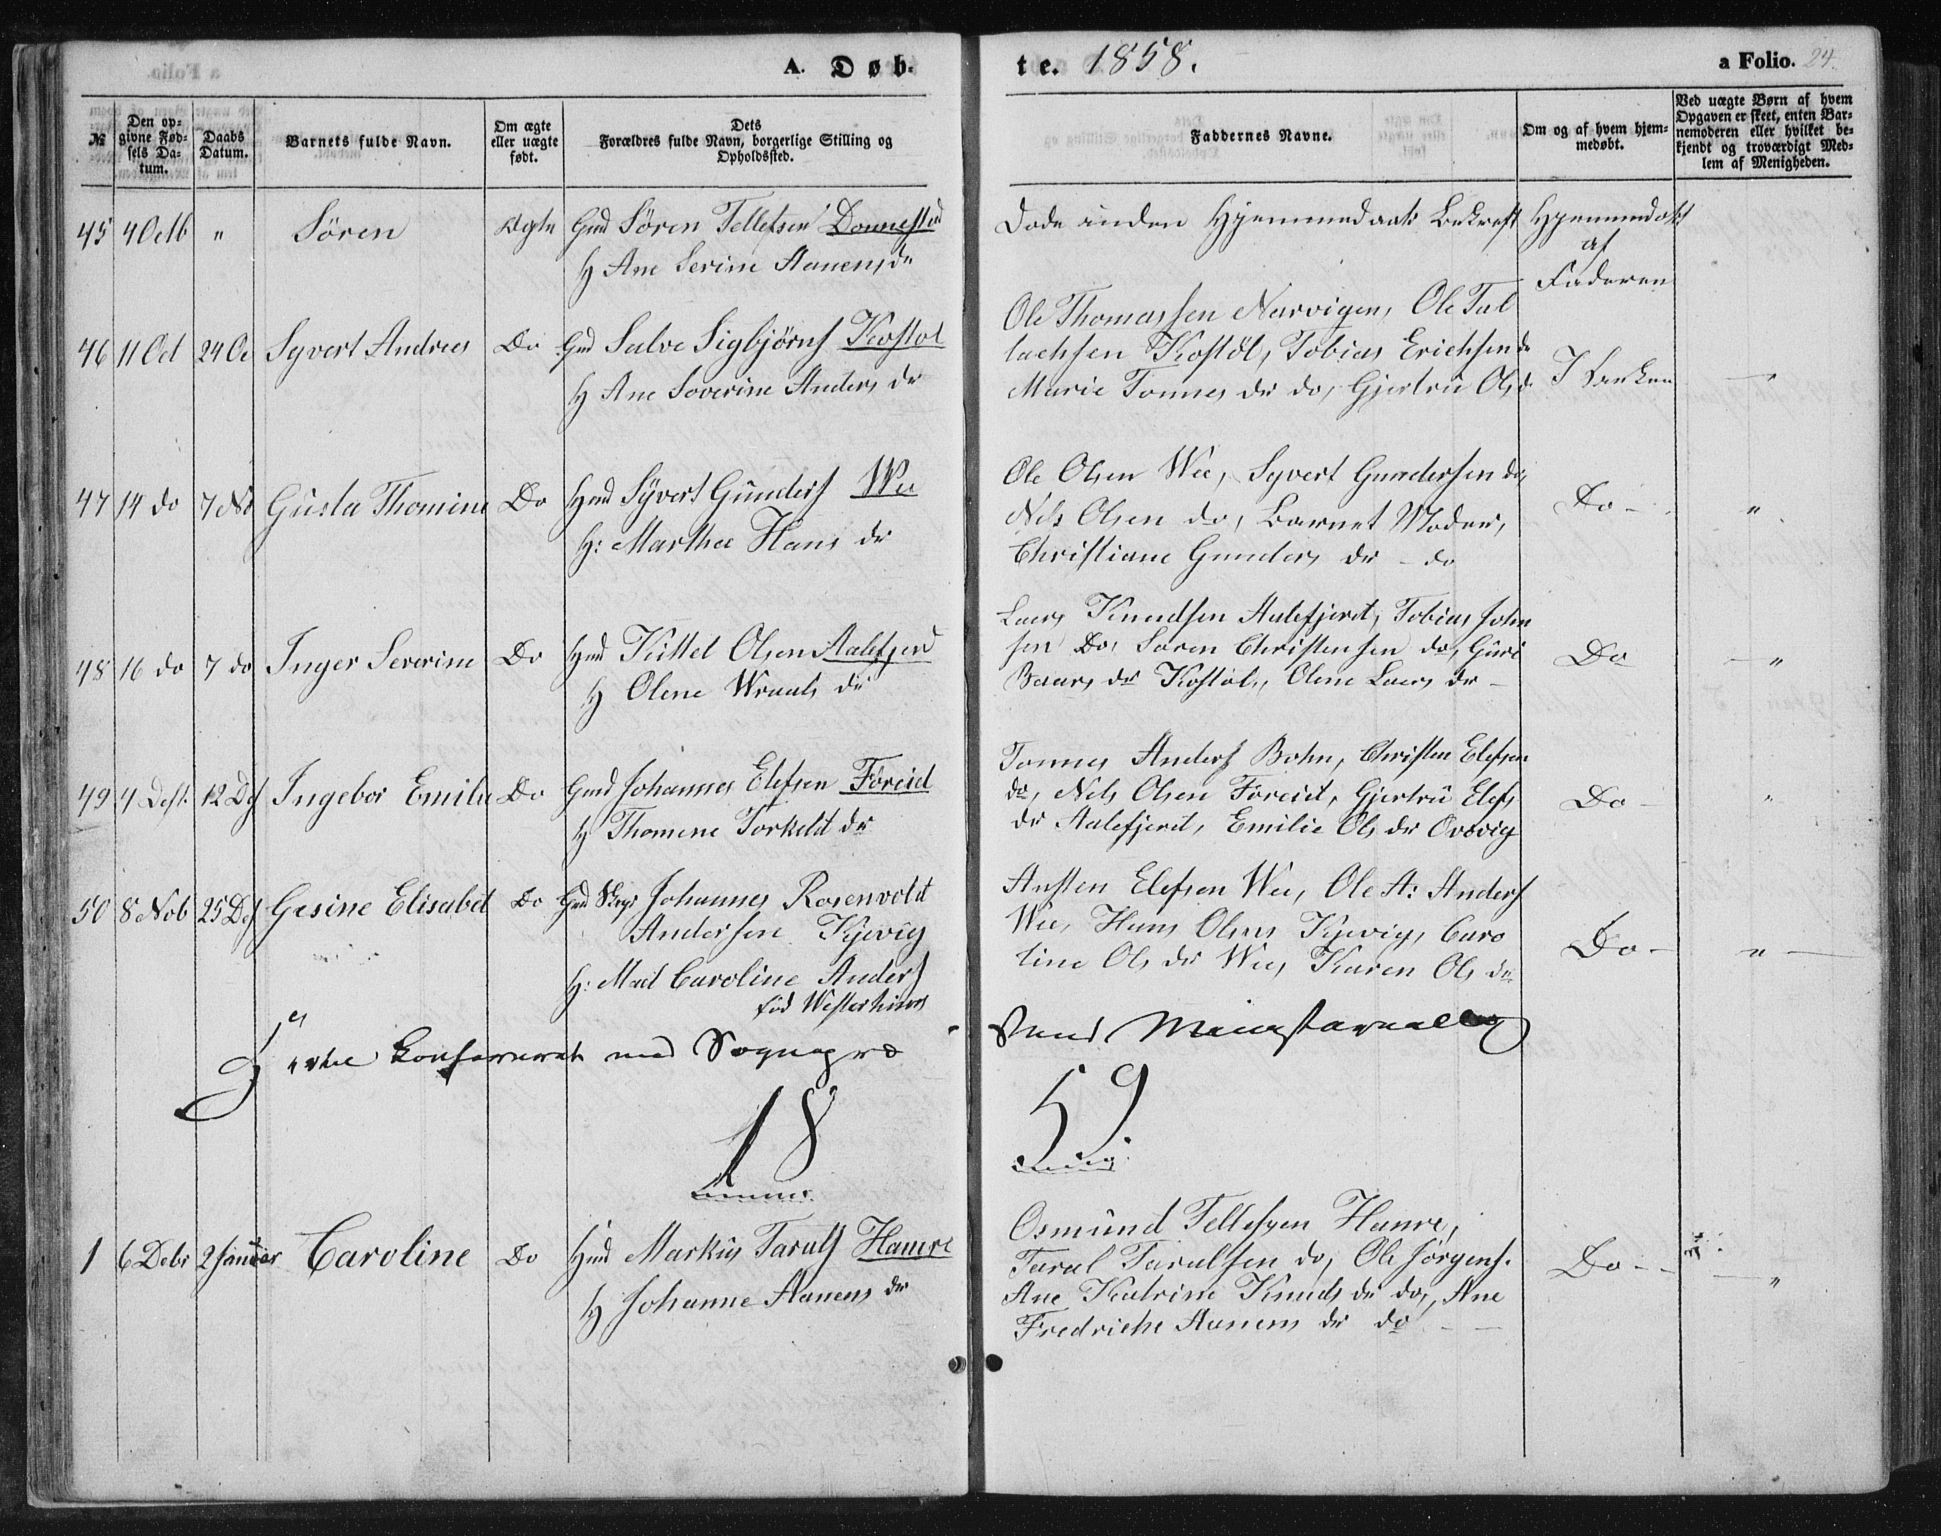 A. Døb.
te. 1858.
a Folio. 24.
№
Den op-
givne Fød-
sels Da-
tum.
Daabs
Datum.
Barnets fulde Navn.
Om ægte
eller uægte
født.
Dets
Forældres fulde Navn, borgerlige Stilling og
Opholdssted.
Faddernes Navne.
Om og af hvem hjem-
medøbt.
Ved uægte Børn af hvem
Opgaven er skeet, enten Bar-
nemoderen eller hvilket be-
kjendt og troværdigt Med-
lem af Menigheden.
45 4 Octb " Sören Ægte Gmd Sören Tellefsen Donnestad
H Ane Serine Aanens dr
Døde inden Hjemmedaab Bekræft
Hjemmedøbt
af
Faderen
46 11 Oct 24 Oc Syvert Andreas Do Gmd Salve Sigbjörns Kostøl
H Ane Soverine Anders dr
Ole Thomassen Narvigen, Ole Tal
lachsen Kostøl, Tobias Erichsen do
Marie Tonnes dr do, Gjertru Ols d
I Kirken
47 14 do 7 No Gusta Thomine Do Hmd Syvert Gunders Wee
H: Marthea Hans dr
Ole Olsen Wee, Syvert Gundersen do,
Nils Olsen do, Barnet Moder,
Christiane Gunders dr - do
Do - "
48 16 do 7 do Inger Severine Do Hmd Kittel Olsen Aalefjerd
H Olene Wraals dr
Laers Knudsen Aalefjerd, Tobias John
sen Do, Sören Christensen do, Guri
Baars dr Kostøl, Olene Laers dr -
Do - "
49 4 Dcs. 12 Ds Ingebor Emilie Do Gmd Johannes Elefsen Föreid
H Thomene Torkeld dr
Tonnes Anders Bohn, Christen Elefsen
do, Nils Olsen Föreid, Gjertru Elefs
dr Aalefjerd, Emilie Ols dr Ovovig
Do - "
50 8 Nob 25 Ds Gesine Elisabet Do Gmd Johannes Rosenvold
Andersen Kjevig
H: Mad Caroline Anders
föd Westerhuus
Austen Elefsen Wee, Ole A: Anders
Wee, Hans Olsens Kjevig, Caro
line Ols dr Wee, Karen Ols dr
Do - "
Konfereret med Sognepræ
stens Ministerialbog
18 59
1 6 Debr 2 Januar Caroline Do Hmd Markus Taruls Hamre
H Johanne Aanens dr
Osmund Tellefsen Hamre,
Tarul Tarulsen do, Ole Jörgens.
Ane Katrine Knuds dr do, Ane
Fredriche Aanens dr do
Do - - "